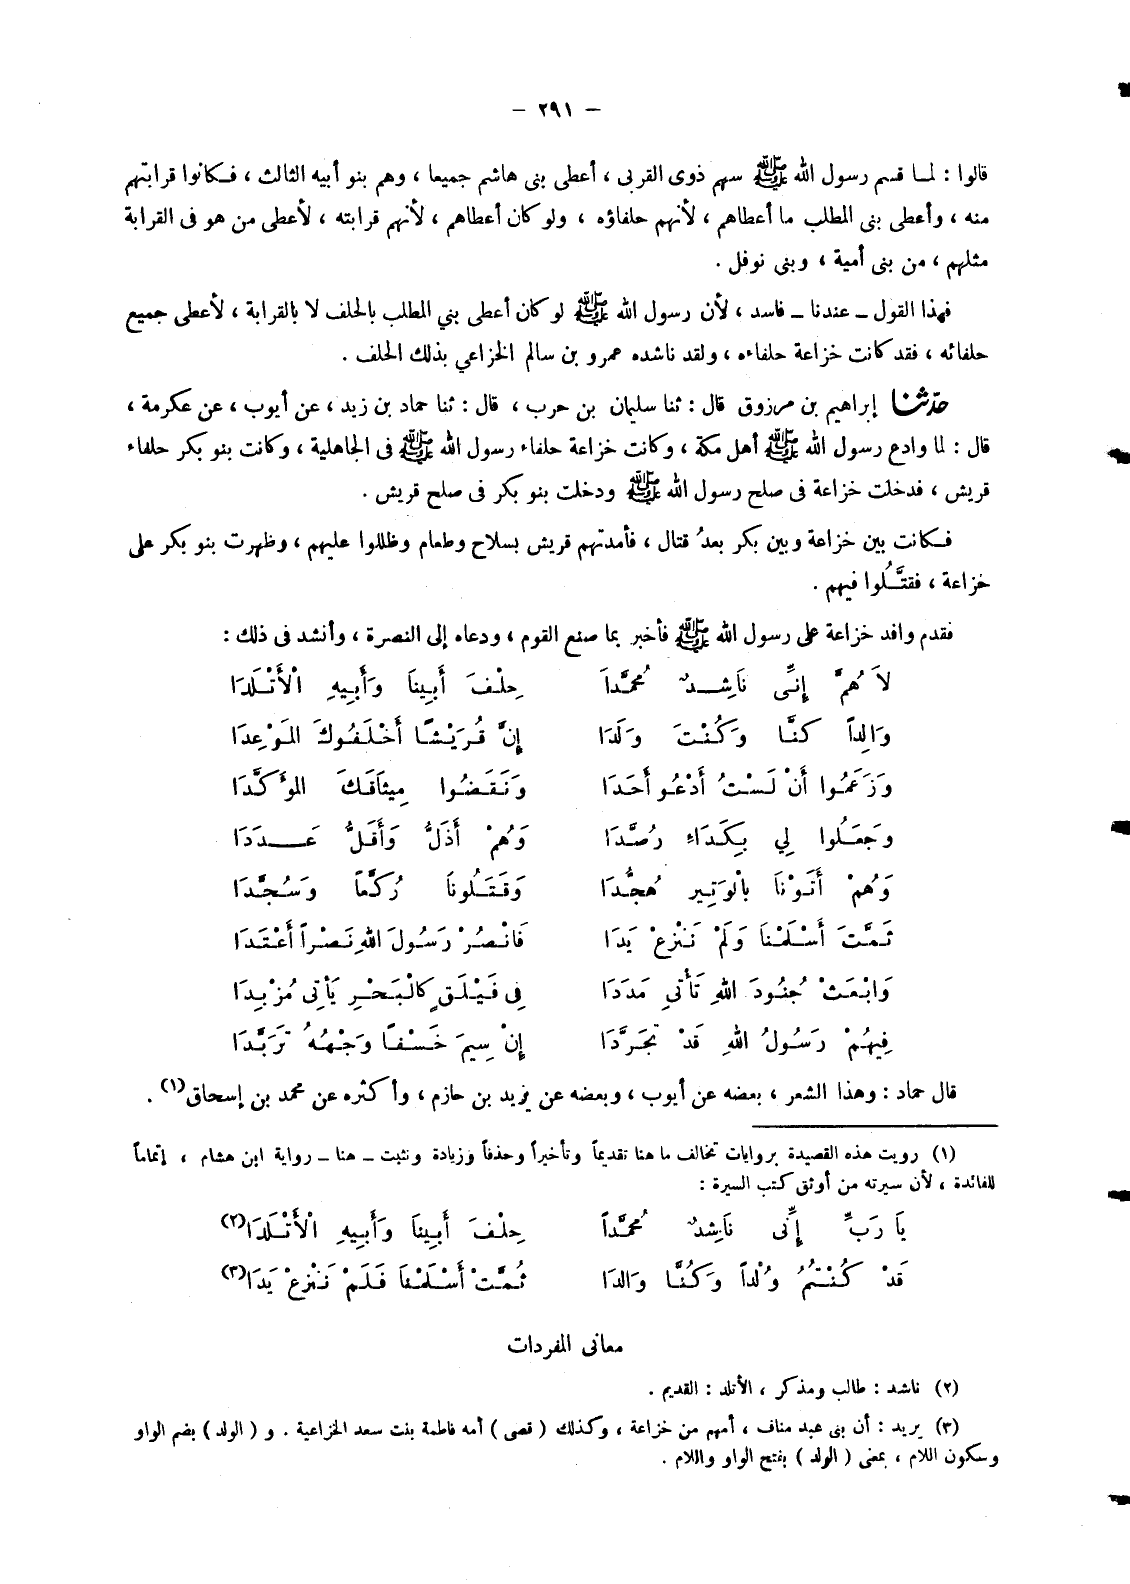 — ٢٩١ —
قالوا : لمـا قسم رسول الله ﷺ سهم ذوى القربى ، أعطى بنى هاشم جميعا ، وهم بنو أبيه الثالث ، فـكانوا قرابتهم
منه ، وأعطى بنى المطلب ما أعطاهم ، لأنهم حلفاؤه ، ولو كان أعطاهم ، لأنهم قرابته ، لأعطى من هو فى القرابة
مثلهم ، من بنى أمية ، وبنى نوفل .
فهذا القول ـ عندنا ـ فاسد ، لأن رسول الله ﷺ لو كان أعطى بني المطلب بالحلف لا بالقرابة ، لأعطى جميع
حلفائه ، فقد كانت خزاعة حلفاءه ، ولقد ناشده عمرو بن سالم الخزاعي بذلك الحلف .
حدثنا إبراهيم بن مرزوق قال : ثنا سليمان بن حرب ، قال : ثنا حماد بن زيد ، عن أيوب ، عن عكرمة ،
قال : لما وادع رسول الله ﷺ أهل مكة ، وكانت خزاعة حلفاء رسول الله ﷺ فى الجاهلية ، وكانت بنو بكر حلفاء
قريش ، فدخلت خزاعة فى صلح رسول الله ﷺ ودخلت بنو بكر فى صلح قريش .
فـكانت بين خزاعة وبين بكر بعدُ قتال ، فأمدتهم قريش بسلاح وطعام وظللوا عليهم ، وظهرت بنو بكر على
خزاعة ، فقتَّلُوا فيهم .
فقدم وافد خزاعة على رسول الله ﷺ فأخبر بما صنع القوم ، ودعاه إلى النصرة ، وأنشد فى ذلك :
لاَهُمَّ إِنِّى نَاشِـدٌ مُحَمَّداَ حِلْفَ أَبِيناَ وَأَبِيهِ الْأَتْلَدَا
وَالِداً كنَّا وَكُنْتَ وَلَدَا إِنَّ قُرَيْشًا أَخْلَفُوكَ المَوْعِدَا
وَزَعَمُوا أَنْ لَسْتُ أَدْعُو أَحَدَا وَنَقَضُوا مِيثَاقَكَ المؤَكَّدَا
وَجَعَلُوا لِي بِكَدَاءِ رُصَّدَا وَهُمْ أَذَلُّ وَأَقَلُّ عَـدَدَا
وَهُمْ أَتَوْنَا بِالْوَتِيرِ هُجَّدَا وَقَتَلُوناَ رُكَّعاً وَسُجَّدَا
ثَمَّتَ أَسْلَمْنَا وَلَمْ نَنْزِعْ يَدَا فَانْصُرْ رَسُولَ اللهِ نَصْراً أَعْتَدَا
وَابْعَثْ جُنُودَ اللهِ تَأْتِي مَدَدَا فِى فَيْلَقٍ كَالْبَحْرِ يَأتِى مُزْبِدَا
فِيهُمْ رَسُولُ اللهِ قَدْ تَجَرَّدَا إِنْ سِيمَ خَسْفًا وَجْهُهُ تَرَبَّدَا
قال حماد : وهذا الشعر ، بعضه عن أيوب ، وبعضه عن يزيد بن حازم ، وأكثره عن محمد بن إسحاق(١) .
(١) رويت هذه القصيدة بروايات تخالف ما هنا تقديماً وتأخيراً وحذفاً وزيادة ونثبت ـ هنا ـ رواية ابن هشام ، إتماماً
للفائدة ، لأن سيرته من أوثق كتب السيرة :
يَا رَبِّ إِنِّى نَاشِدٌ مُحَمَّداً حِلْفَ أَبِيناَ وَأَبِيهِ الْأَتْلَدَا(٢)
قَدْ كُنْتُمُ وُلْداً وَكُنَّا وَالدَا ثُمَّتْ أَسْلَمْنَا فَلَمْ نَنْزِعْ يَدَا(٣)
معانى المفردات
(٢) ناشد : طالب ومذكر ، الأتلد : القديم .
(٣) يريد : أن بنى عبد مناف ، أمهم من خزاعة ، وكذلك ( قصى ) أمه فاطمة بنت سعد الخزاعية . و ( الولد ) بضم الواو
وسكون اللام ، بمعنى ( الولد ) بفتح الواو واللام .